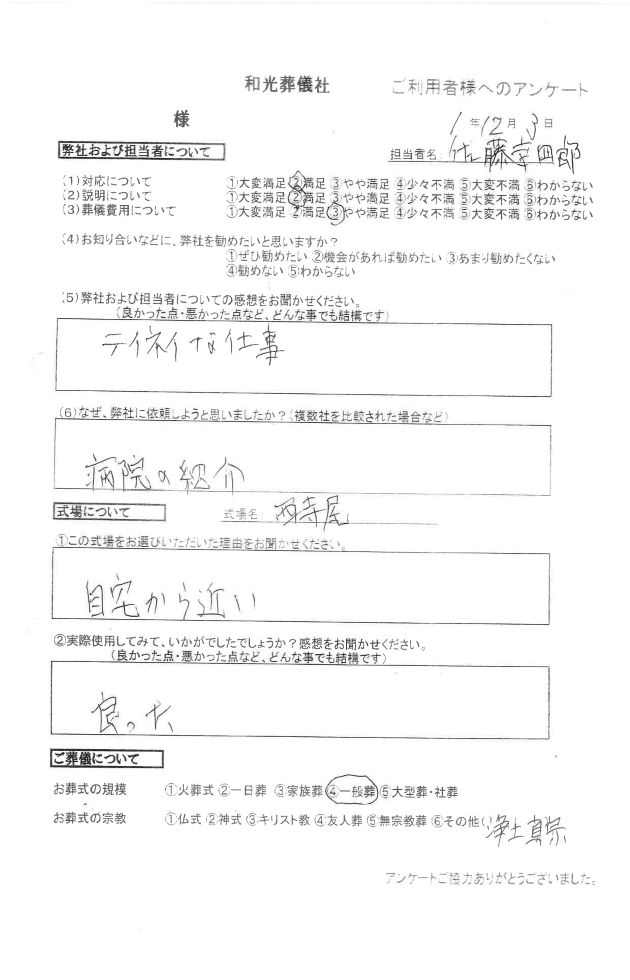 和光葬儀社 ご利用者様へのアンケート
様 1年12月3日
弊社および担当者について 担当者名 佐藤幸四郎
(1)対応について ①大変満足②満足③やや満足④少々不満⑤大変不満⑥わからない
(2)説明について ①大変満足②満足③やや満足④少々不満⑤大変不満⑥わからない
(3)葬儀費用について ①大変満足②満足③やや満足④少々不満⑤大変不満⑥わからない
(4)お知り合いなどに、弊社を勧めたいと思いますか?
①ぜひ勧めたい②機会があれば勧めたい③あまり勧めたくない
④勧めない⑤わからない
(5)弊社および担当者についての感想をお聞かせください。
(良かった点・悪かった点など、どんな事でも結構です)
テイネイな仕事
(6)なぜ、弊社に依頼しようと思いましたか?(複数社を比較された場合など)
病院の紹介
式場について 式場名 西寺尾
①この式場をお選びいただいた理由をお聞かせください。
自宅から近い
②実際使用してみて、いかがでしたでしょうか?感想をお聞かせください。
(良かった点・悪かった点など、どんな事でも結構です)
良った
ご葬儀について
お葬式の規模 ①火葬式②一日葬③家族葬④一般葬⑤大型葬・社葬
お葬式の宗教 ①仏式②神式③キリスト教④友人葬⑤無宗教葬⑥その他(浄土真宗
アンケートご協力ありがとうございました。